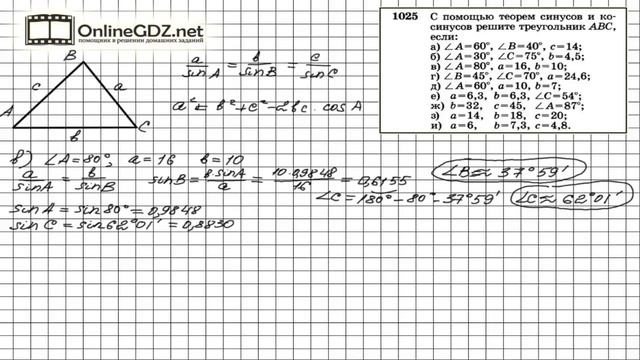 OnlineGDZ.net
помощник в решении домашних заданий
1025 С помощью теорем синусов и ко-
синусов решите треугольник ABC,
если:
а) ∠A=60°, ∠B=40°, c=14;
б) ∠A=30°, ∠C=75°, b=4,5;
в) ∠A=80°, a=16, b=10;
г) ∠B=45°, ∠C=70°, a=24,6;
д) ∠A=60°, a=10, b=7;
е) a=6,3, b=6,3, ∠C=54°;
ж) b=32, c=45, ∠A=87°;
з) a=14, b=18, c=20;
и) a=6, b=7,3, c=4,8.
B
c a
A b C
a/sinA = b/sinB = c/sinC
a² = b²+c²-2bc·cosA
в) ∠A=80°, a=16 b=10
a/sinA = b/sinB sinB = b·sinA/a = 10·0,9848/16 = 0,6155 ∠B≈37°59'
∠C=180°-80°-37°59' ∠C≈62°01'
sinA = sin80° = 0,9848
sinC = sin62°01' = 0,8830